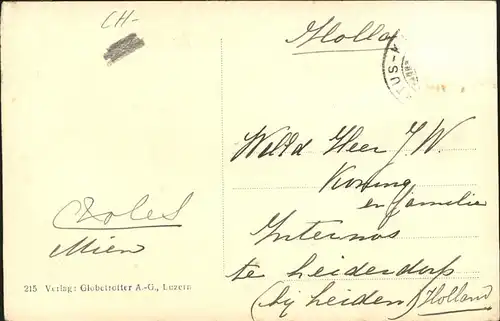 CH-
Holla
TUS-4
Weled Heer J. W.
Koning
en familie
Internos
te Leiderdorp
(bij Leiden) Holland
Mien
215 Verlag: Globetrotter A.-G., Luzern